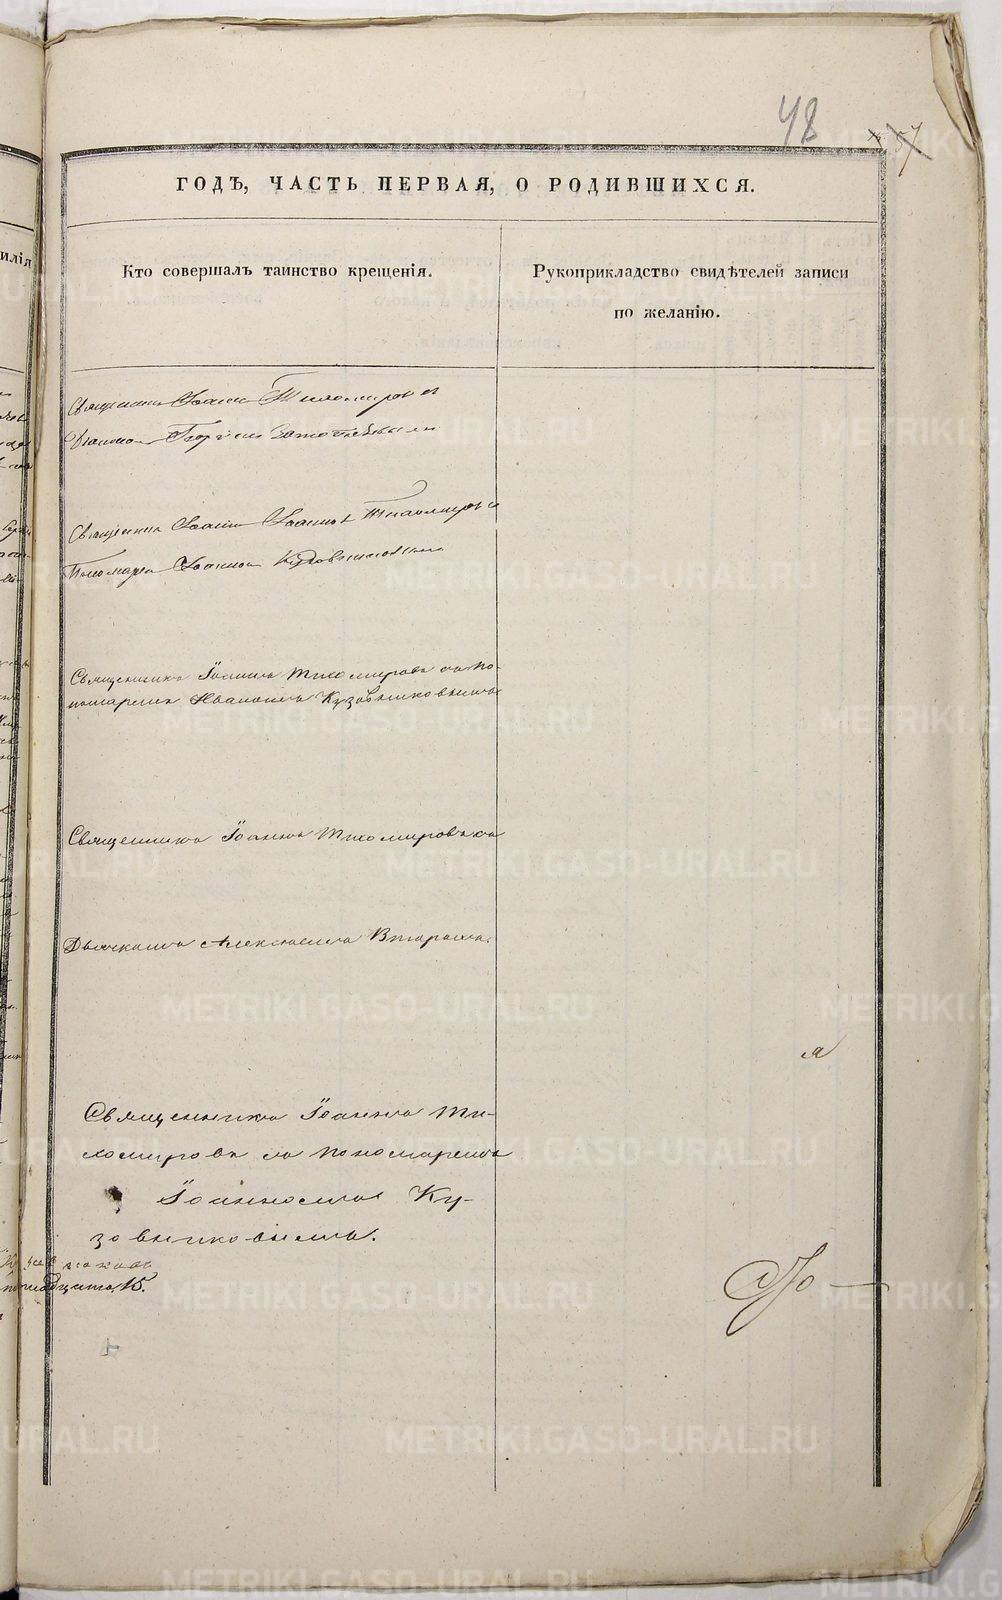 48
57
ГОДЪ, ЧАСТЬ ПЕРВАЯ, О РОДИВШИХСЯ.
илія
Кто совершалъ таинство крещенія.
Рукоприкладство свидѣтелей записи
по желанію.
Священникъ Іоаннъ Тихомировъ
Георгіемъ
Священникъ Іоаннъ Іоанновъ Тихомировъ
Пономарь Іоаннъ Кузовниковъ
Священникъ Іоаннъ Тихомировъ съ по-
номаремъ Иваномъ Кузовниковымъ
Священникъ Іоаннъ Тихомировъ съ
Дьячкомъ Алексѣемъ
Священникъ Іоаннъ Ти-
хомировъ съ пономаремъ
Іоанномъ Ку-
зовниковымъ.
15.
METRIKI.GASO-URAL.RU